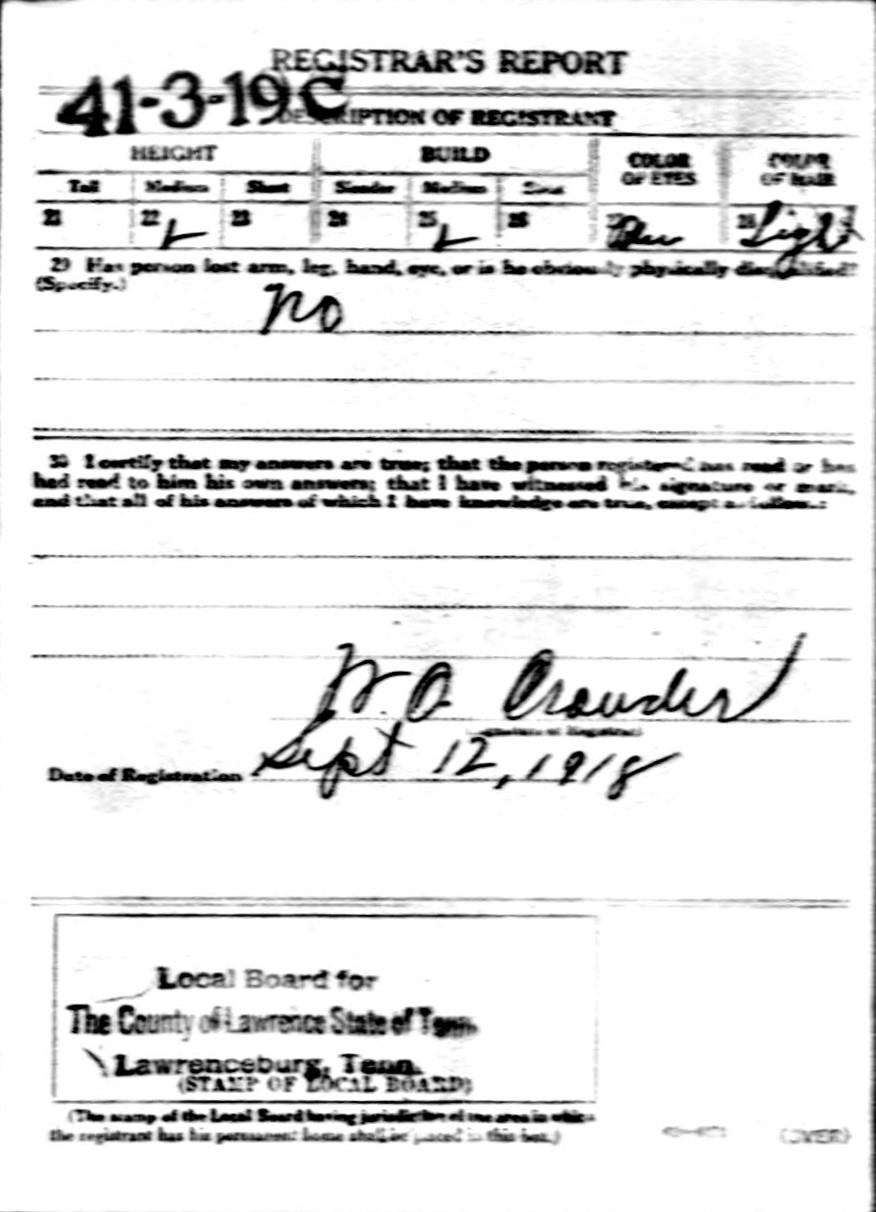 REGISTRAR'S REPORT
41-3-19 C
DESCRIPTION OF REGISTRANT
HEIGHT BUILD COLOR OF EYES COLOR OF HAIR
Tall Medium Short Slender Medium Stout
21 22 ✓ 23 24 25 ✓ 26 27 Blu 28 Light
29 Has person lost arm, leg, hand, eye, or is he obviously physically disqualified?
(Specify.)
No
30 I certify that my answers are true; that the person registered has read or has
had read to him his own answers; that I have witnessed his signature or mark,
and that all of his answers of which I have knowledge are true, except as follows:
W. O. Crowder
(Signature of Registrar)
Date of Registration Sept 12, 1918
Local Board for
The County of Lawrence State of Tenn.
Lawrenceburg, Tenn.
(STAMP OF LOCAL BOARD)
(The stamp of the Local Board having jurisdiction of the area in which
the registrant has his permanent home shall be placed in this box.)
(OVER)